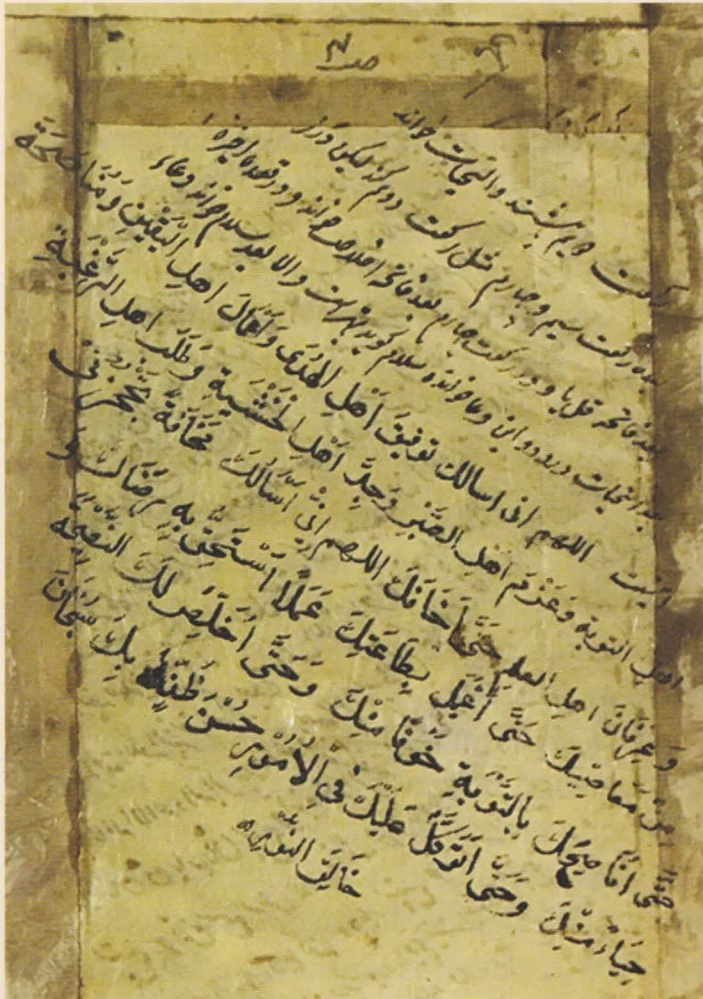 رکعت دویم بنشیند والتحیات خواند
بعده رکعت سیم وچهارم مثل رکعت دوم کند لیکن در
بعد فاتحه قل یا و در رکعت چهارم بعد فاتحه اخلاص خواند و در قعده اخیره
بعد التحیات درود و این دعا خوانده سلام گوید بهتر است والا بعد سلام خواند دعاء
اینست اللهم انی اسالک توفیقَ اَهْلِ الهُدَی وَاَعْمَالَ اهلِ الیَقِینِ وَمُنَاصَحَةَ
اهلِ التوبة وَعَزْمَ اهلِ الصَّبْرِ وَجِدَّ اَهْلِ الخَشْیَةِ وَطَلَبَ اهلِ الرَّغْبَةِ
وَعِرْفَانَ اهلِ العلم حَتَّی اَخَافَکَ اللهم اِنِّی اَسْاَلُکَ مَخَافَةً تَحْجُزُنِیْ
عن مَعَاصِیْکَ حَتَّی اَعْمَلَ بِطَاعَتِکَ عَمَلًا اَسْتَحِقُّ بِهِ رِضَاکَ و
حَتَّی اُنَاصِحَکَ بِالتَّوْبَةِ خَوْفًا مِنْکَ وَحَتَّی اُخْلِصَ لَکَ النَّصِیْحَةَ
حیَاءً مِنْکَ وحَتَّی اَتَوَکَّلَ عَلَیْکَ فِی الْاُمُوْرِ حُسْنَ ظَنٍّ بِکَ سُبْحَانَ
خَالِقِ النُّوْرِ